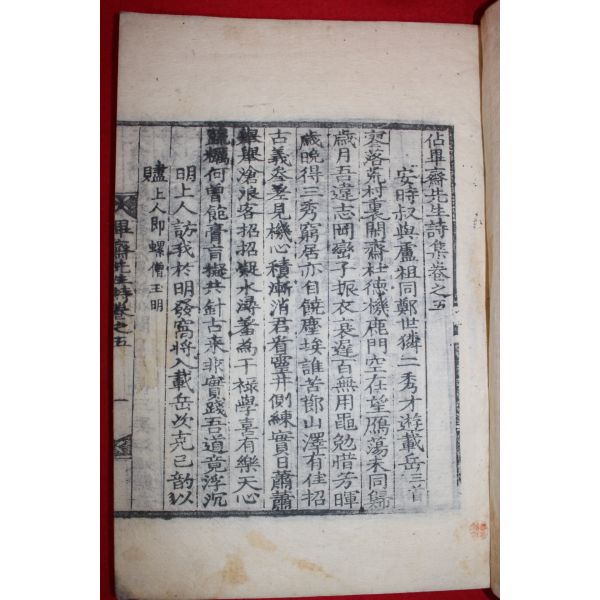 佔畢齋先生詩集卷之五
安時叔與盧祖同鄭世獜二秀才遊載岳三首
寥落荒村裏開齋杜德機鹿門空在望鴈蕩未同歸
歲月吾違志岡巒子振衣衰遲百無用黽勉惜芳暉
歲晩得三秀窮居亦自饒塵埃誰苦 山澤有佳招
古義叅差見機心積漸消君看靈井側練實日蕭蕭
舉舉滄浪客招招凝水潯蓍為干祿學喜有樂天心
鹽糲何曾飽膏肓擬共針古来非實踐吾道竟浮沉
明上人訪我於明發窩將入載岳次克己韵以
贐上人即螺僧玉明
畢齋先生詩卷之五
一